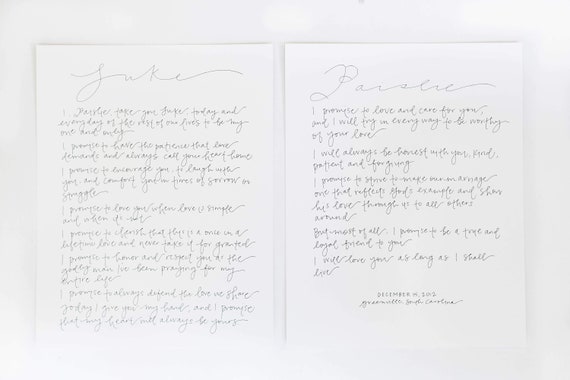 Luke
I, Paislie, take you Luke, today and
everyday of the rest of our lives to be my
one and only
I promise to have the patience that love
demands and always call your heart home
I promise to encourage you, to laugh with
you, and comfort you in times of sorrow or
struggle
I promise to love you when love is simple
and when it's not
I promise to cherish that this is a once in a
lifetime love and never take it for granted
I promise to honor and respect you as the
godly man I've been praying for my
entire life
I promise to always defend the love we share
Today I give you my hand, and I promise
that my heart will always be yours
Paislie
I promise to love and care for you,
and I will try in every way to be worthy
of your love
I will always be honest with you, kind,
patient and forgiving
I promise to strive to make our marriage
one that reflects God's example and show
his love through us to all others
around
But most of all, I promise to be a true and
loyal friend to you
I will love you as long as I shall
live
DECEMBER 15, 2012
Greenville, South Carolina